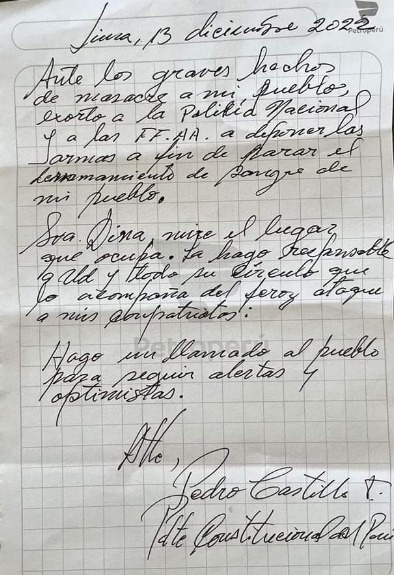 Lima, 13 diciembre 2022
Petroperú
Ante los graves hechos
de masacre a mi pueblo,
exorto a la Policía Nacional
y a las FF.AA. a deponer las
armas a fin de parar el
derramamiento de sangre de
mi pueblo.
Sra. Dina, mire el lugar
que ocupa. La hago responsable
a Ud y todo su círculo que
lo acompaña del feroz ataque
a mis compatriotas.
Petroperú
Hago un llamado al pueblo
para seguir alertas y
optimistas.
Atte,
Pedro Castillo T.
Pdte Constitucional del Perú